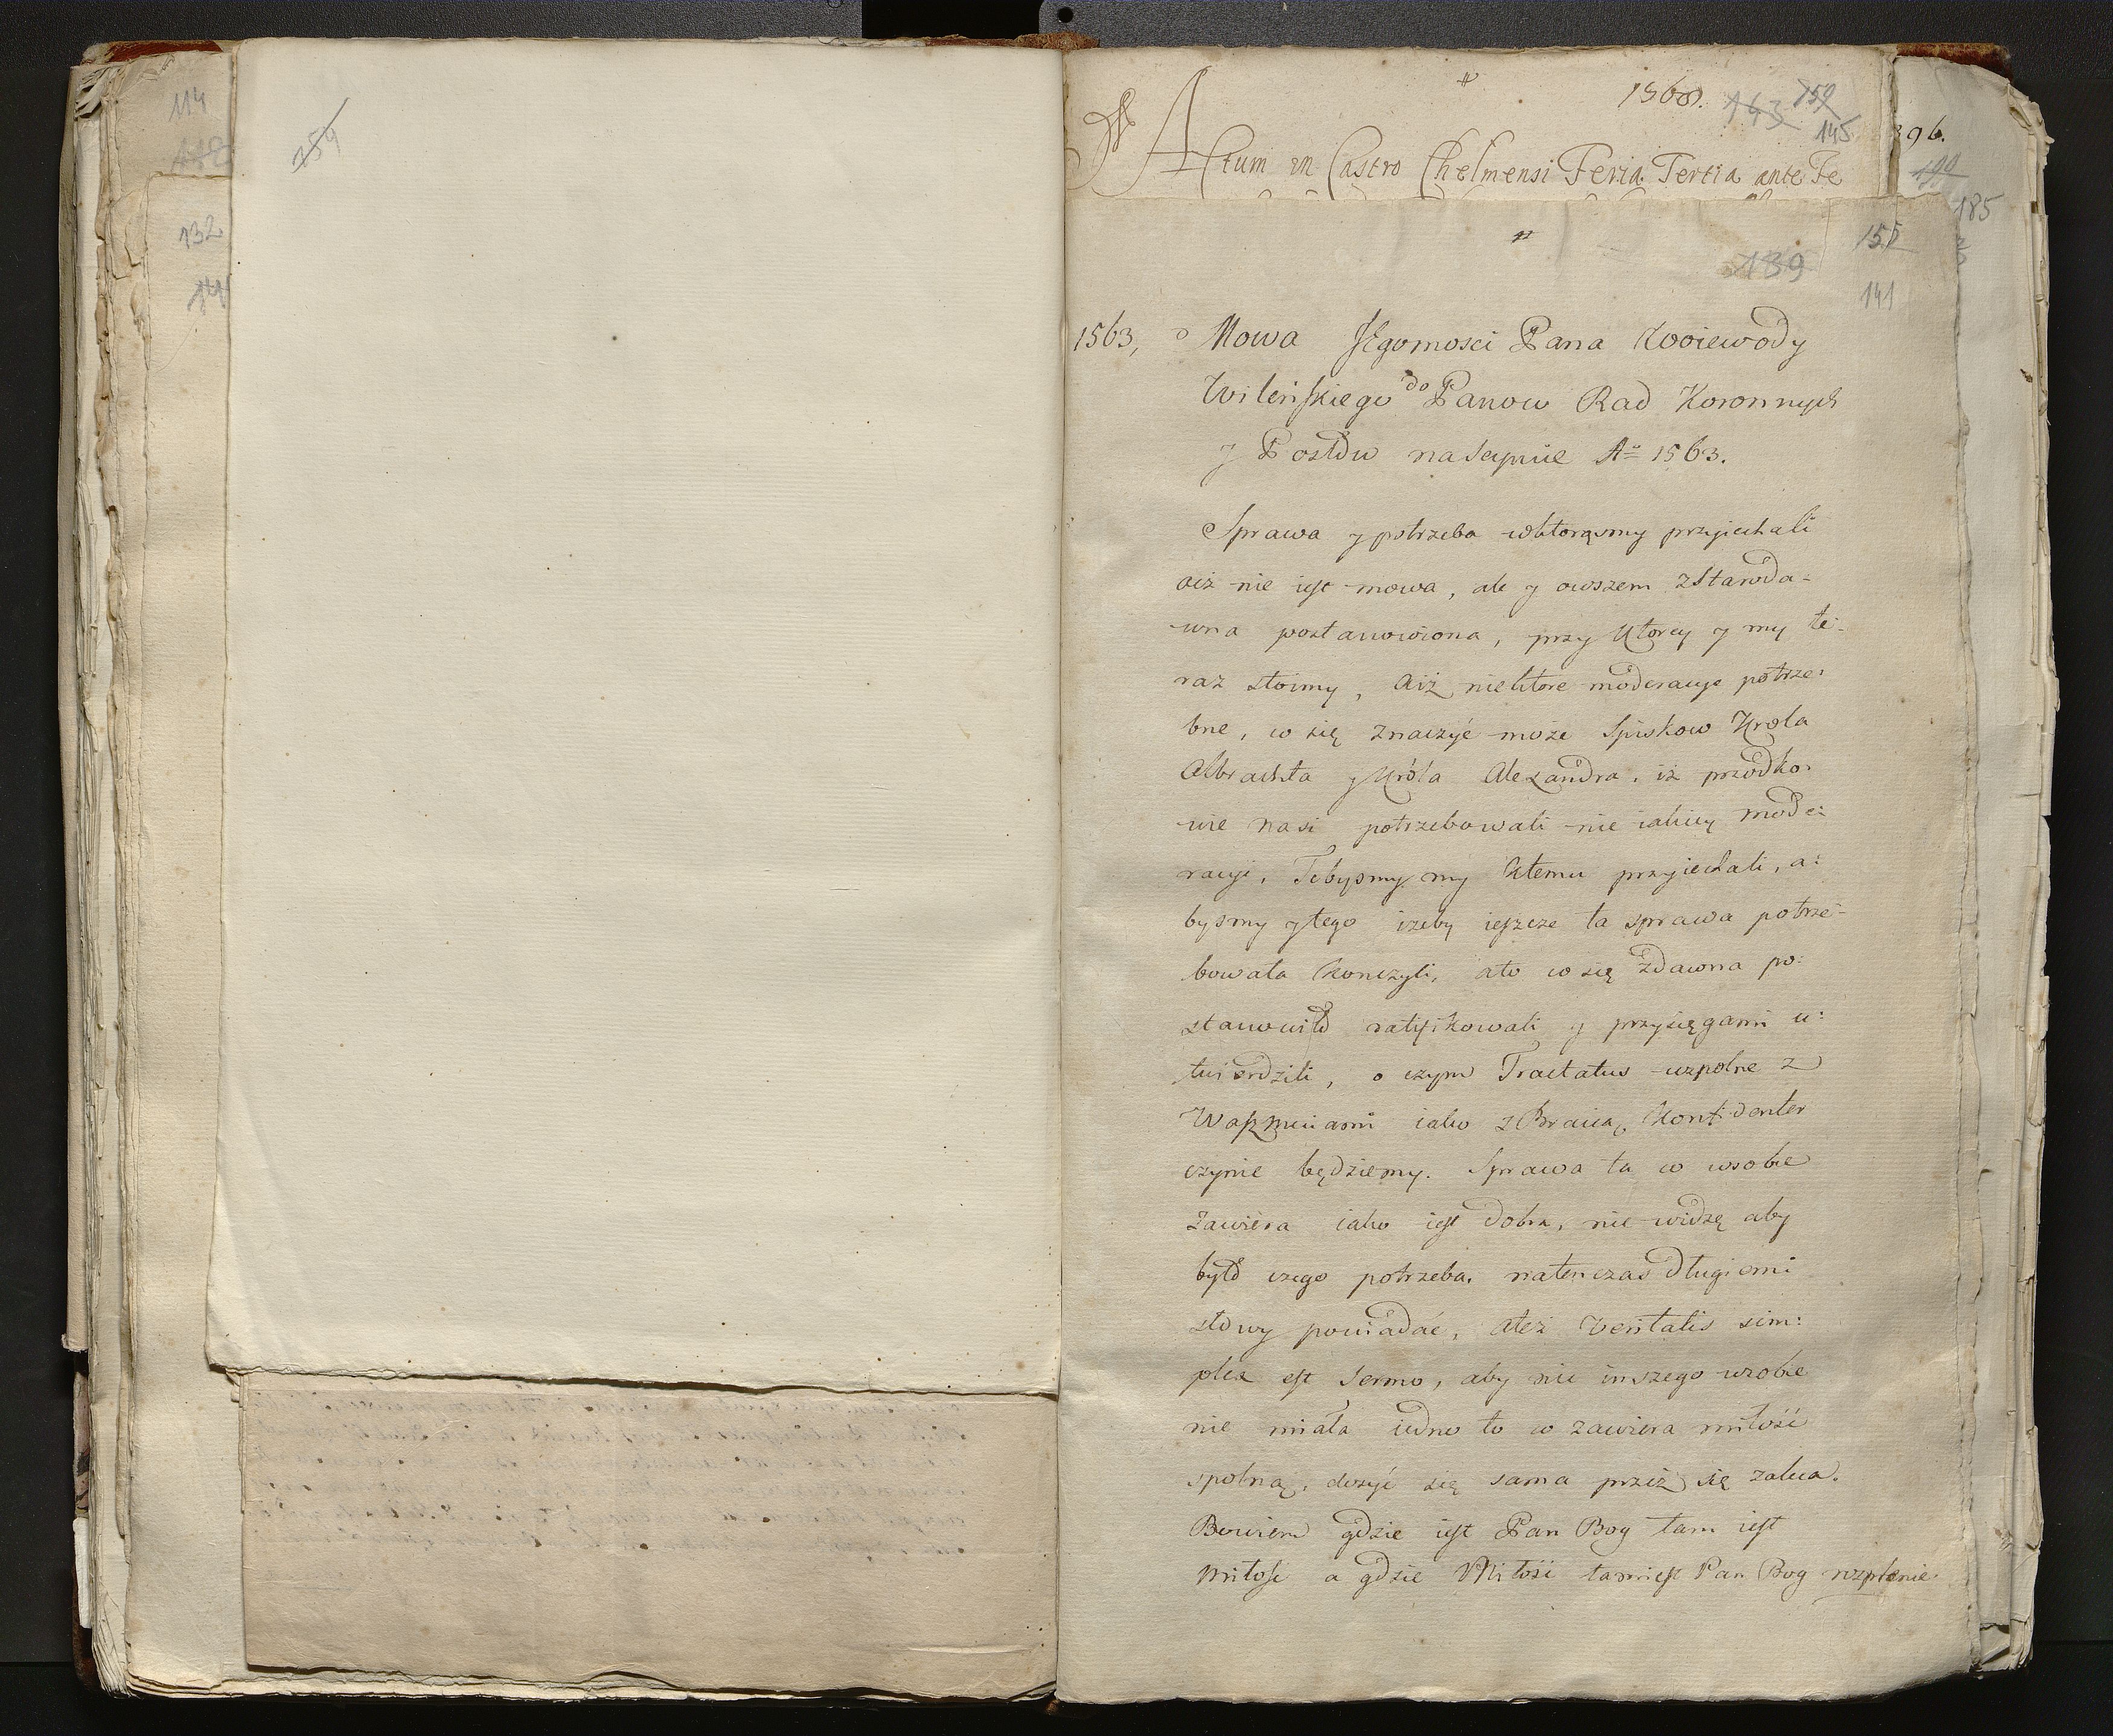 114
132
159
1568.
143 159
145
396.
Actum in Castro Chelmensi Feria Tertia ante Fe
190
185
155
139
141
1563, Mowa Jegomosci Pana Woiewody
Wilenskiego do Panow Rad Koronnych
y Posłow na Seymie Aº 1563.
Sprawa y potrzeba wktorąsmy przyiechali
aiz nie iest nowa, ale y owszem zStaroda=
wna postanowiona, przy Ktorey y my te=
raz stoimy, Aiż niektore moderacye potrze=
bne, co się znaczyć może Spiskow Krola
Albrachta y Króla Alexandra, iż przodko=
wie nasi potrzebowali nie iakiey mode=
racyi, Tebysmy my Ktemu przyiechali, a=
bysmy ytego iżeby ieszcze ta sprawa potrze=
bowała Konczyli, ato co się zdawna po=
stanowiło ratifikowali y przysięgami u=
twierdzili, o czym Tractatus wspolne z
Waszmciami iako zBracią Konfidenter
czynic będziemy. Sprawa ta co wsobie
zawiera iako iest dobra, nie widzę aby
było czego potrzeba, natenczas długiemi
słowy powiadać, Ateż Veritatis sim=
plex est Sermo, aby nic inszego wsobie
nie miała iedno to co zawiera miłość
spolną, dosyć się sama przez się zaleca.
Bowiem gdzie iest Pan Bog tam iest
miłość a gdzie Miłość tam iest Pan Bog